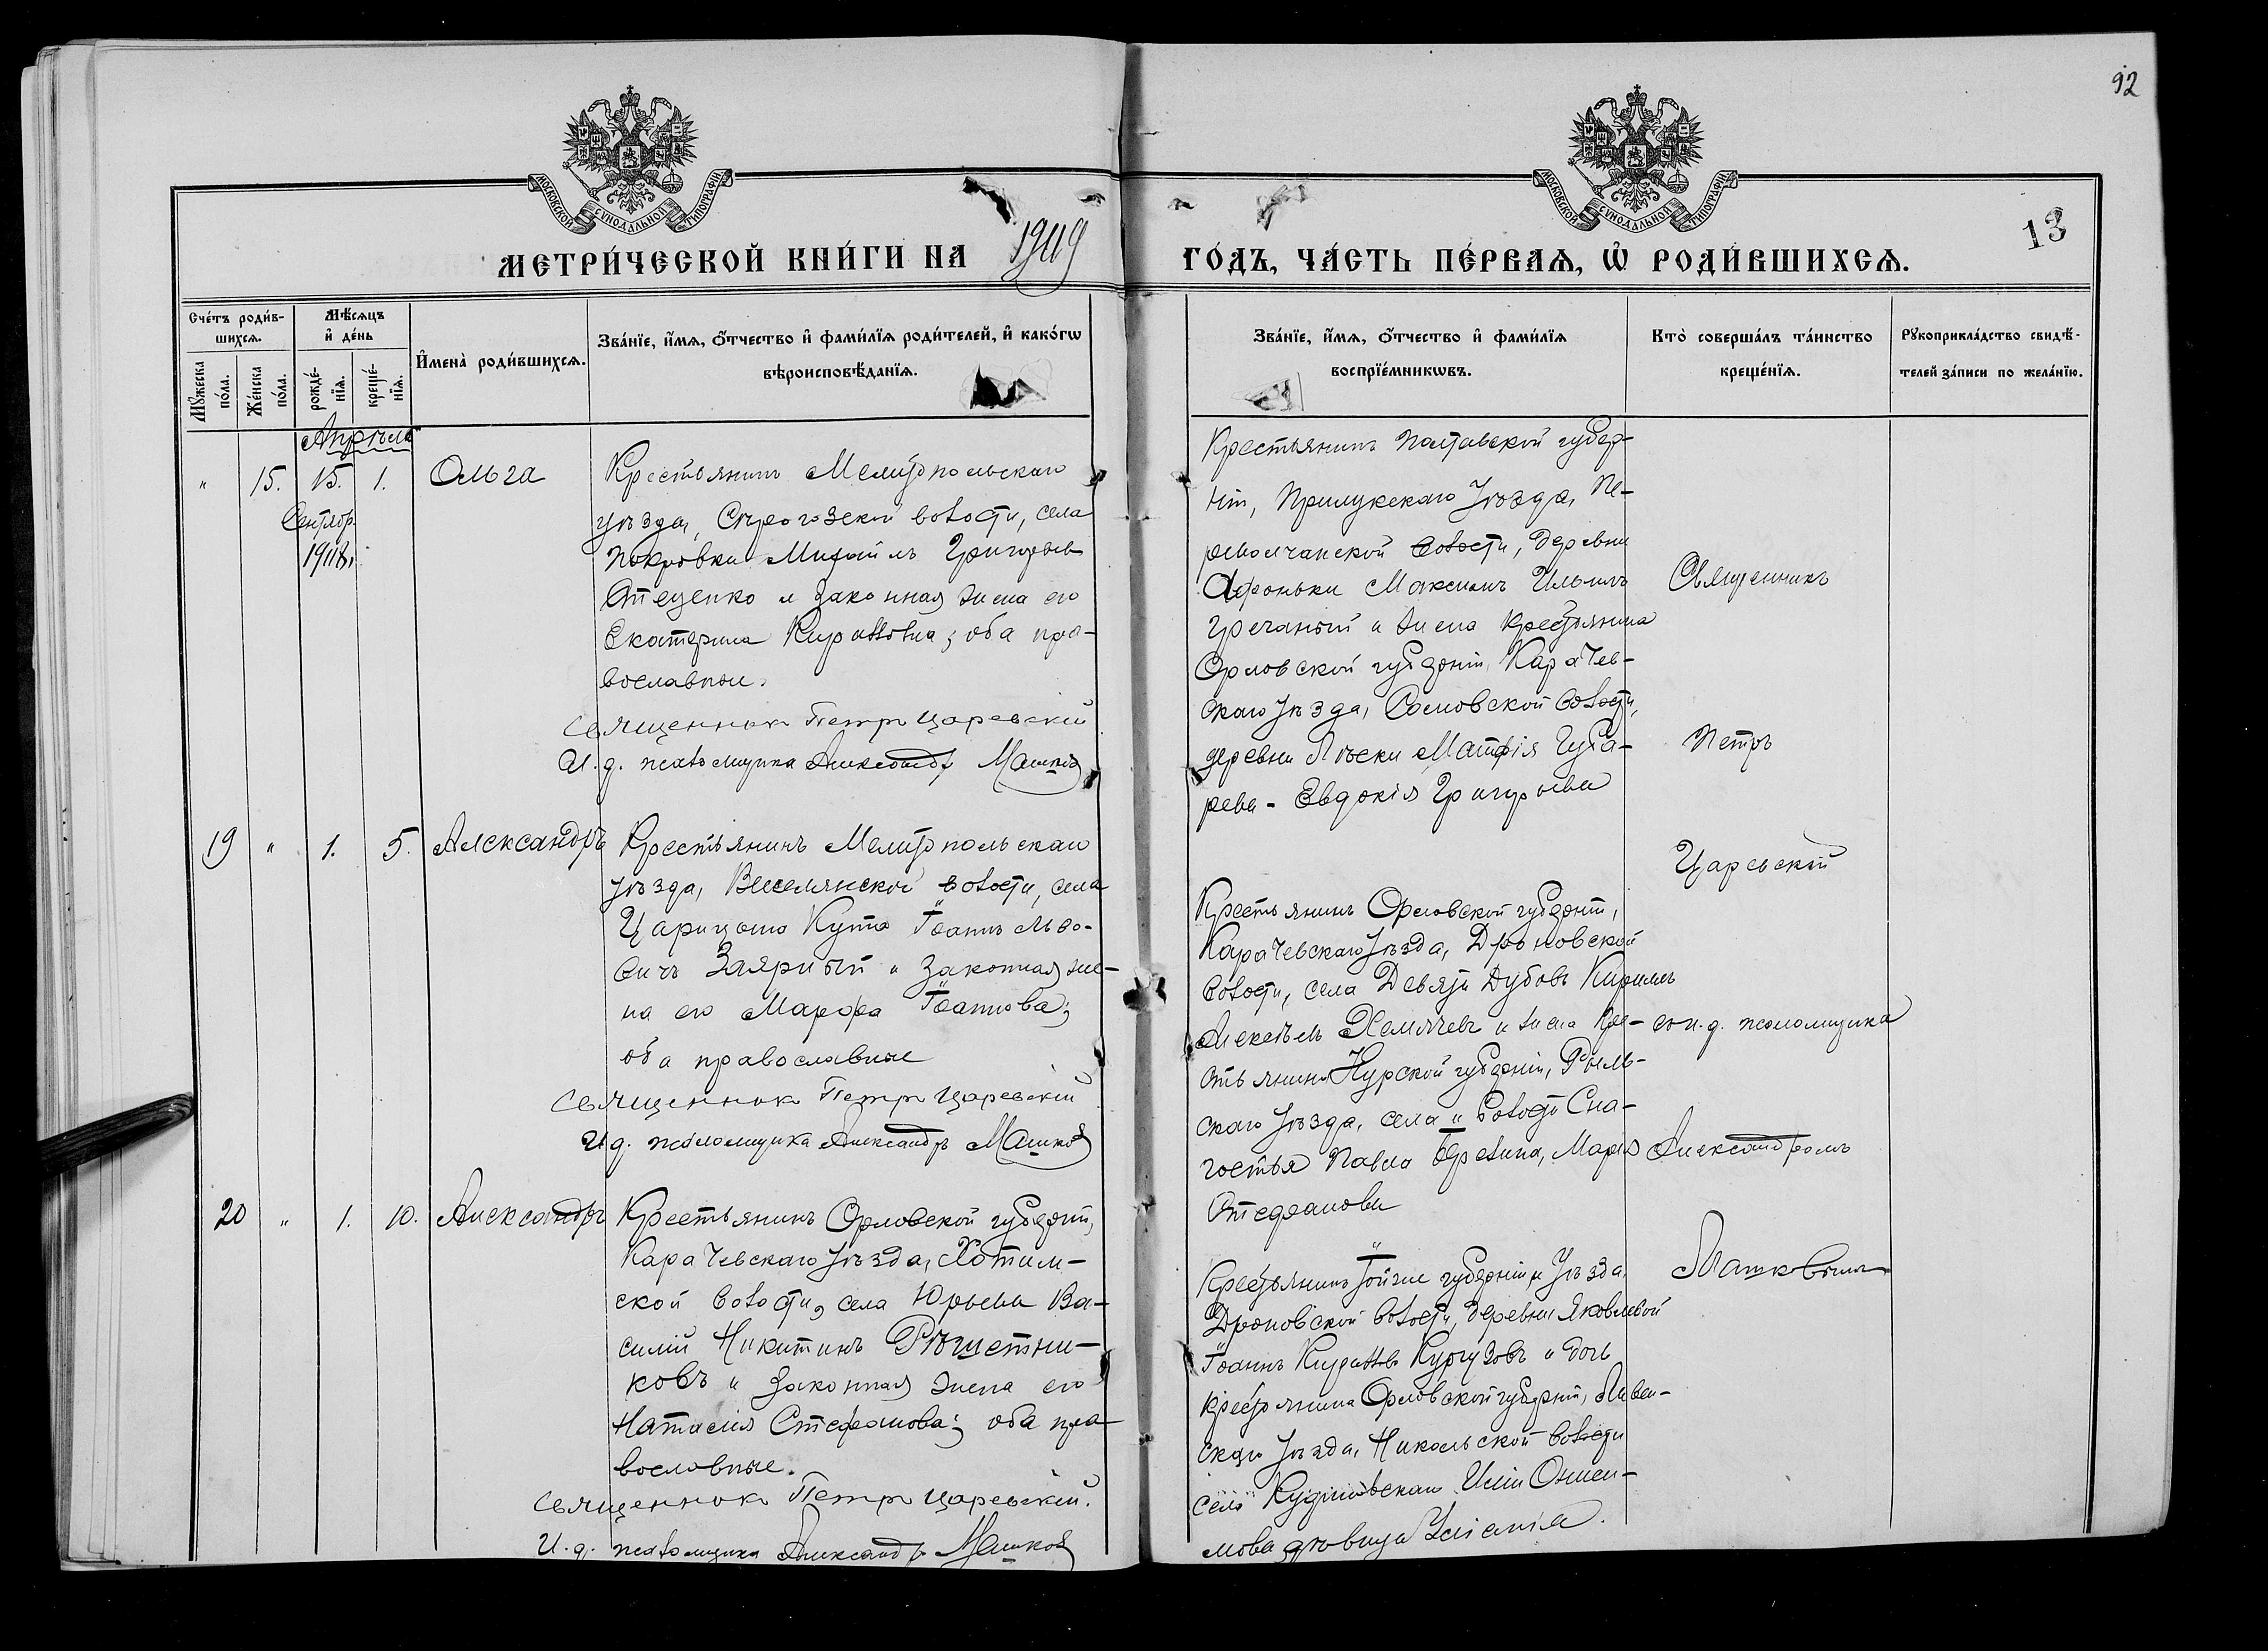 92
13
МОСКОВСКОЙ СѴНОДАЛЬНОЙ ТИПОГРАФІИ
МОСКОВСКОЙ СѴНОДАЛЬНОЙ ТИПОГРАФІИ
МЕТРИ́ЧЕСКОЙ КНИ́ГИ НА 1919 ГО́ДЪ, ЧА́СТЬ ПЕ́РВАѦ, Ѡ҆ РОДИ́ВШИХСѦ.
Счетъ роди́в-
шихсѧ.
Мꙋжеска по́ла.
Же́нска по́ла.
Мѣсѧцъ
и҆ де́нь
рожде́-
нїѧ.
креще́-
нїѧ.
И҆мена̀ роди́вшихсѧ.
Зва́нїе, и҆́мѧ, ѻ҆́тчество и҆ фами́лїѧ роди́телей, и҆ како́гѡ
вѣроисповѣ́данїѧ.
Зва́нїе, и҆́мѧ, ѻ҆́тчество и҆ фами́лїѧ
воспрїе́мникѡвъ.
Кто̀ соверша́лъ та́инство
креще́нїѧ.
Рꙋкоприкла́дство свидѣ́-
телей за́писи по жела́нїю.
Апрѣль
" 15. 15. 1. Ольга
Сентябр.
1918 г.
Крестьянинъ Мелитопольскаго
уѣзда, Сѣрогозской волости, села
Покровки Михаилъ Григорьев
Стеценко и законная жена его
Екатерина Кириллова; оба пра-
вославные.
Священник Петр Царевскій
И. д. псаломщика Александр Машков
Крестьянинъ Полтавской губер-
ніи, Прилукскаго Уѣзда, Пе-
револчанской волости, деревни
Афоньки Максимъ Ильинъ
Гречаный и жена крестьянина
Орловской губерніи, Карачев-
скаго Уѣзда, волости,
деревни Матфія Губа-
рева - Евдокія Григорьева
19 " 1. 5. Александръ
Крестьянинъ Мелитопольскаго
уѣзда, Веселянской волости, села
Царицына Кута Іоаннъ Льво-
вичъ Заярный и законная же-
на его Марфа Іоаннова;
оба православные
Священник Петр Царевскій
И. д. псаломщика Александръ Машков
Крестьянинъ Орловской губерніи,
Карачевскаго Уѣзда, Дроновской
волости, села Девяти Дубовъ Кириллъ
Алексѣевъ Хемичевъ и жена кре-
стьянина Курской губерніи, Рыль-
скаго Уѣзда, села и волости Сна-
гостья Павла Марія
Стефанова
20 " 1. 10. Александръ
Крестьянинъ Орловской губерніи,
Карачевскаго Уѣзда, Хотим-
ской волости, села Юрьева Ва-
силій Никитинъ Рѣшетни-
ковъ и законная жена его
Наталія Стефанова; оба пра-
вославные.
Священник Петр Царевскій.
И. д. псаломщика Александр Машков
Крестьянинъ той же губерніи и Уѣзда,
Дроновской волости, деревни Яковлевой
Іоаннъ Кирилловъ Кургузовъ и дочь
крестьянина Орловской губерніи, Ливен-
скаго Уѣзда, Никольской волости
села Иліи Онисі-
мова дѣвица
Священникъ
Петръ
Царевскій
съ и. д. псаломщика
Александромъ
Машковымъ